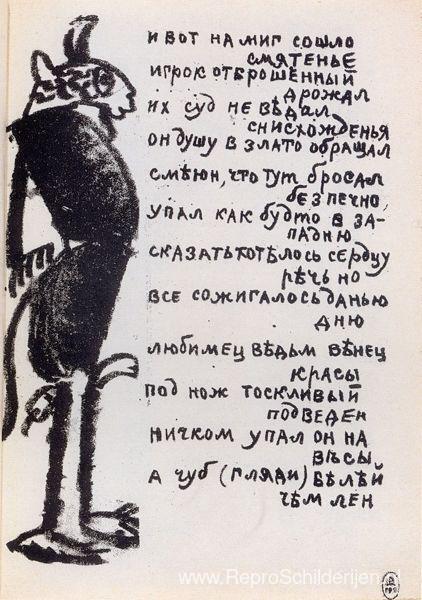 И ВОТ НА МИГ СОШЛО
СМЯТЕНЬЕ
ИГРОК ОТБРОШЕННЫЙ
ДРОЖАЛ
ИХ СУД НЕ ВѢДАЛ
СНИСХОЖДЕНЬЯ
ОН ДУШУ В ЗЛАТО ОБРАЩАЛ
СМѢЮН, ЧТО ТУТ БРОСАЛ
БЕЗПЕЧНО,
УПАЛ КАК БУДТО В ЗА-
ПАДНЮ
СКАЗАТЬ ХОТѢЛОСЬ СЕРДЦУ
РѢЧЬ НО
ВСЕ СОЖИГАЛОСЬ ДАНЬЮ
ДНЮ
ЛЮБИМЕЦ ВѢДЬМ ВѢНЕЦ
КРАСЫ
ПОД НОЖ ТОСКЛИВЫЙ
ПОДВЕДЕН
НИЧКОМ УПАЛ ОН НА
ВѢСЫ,
А ЧУБ (ГЛЯДИ) БѢЛѢЙ
ЧѢМ ЛЕН
www.ReproSchilderijen.nl